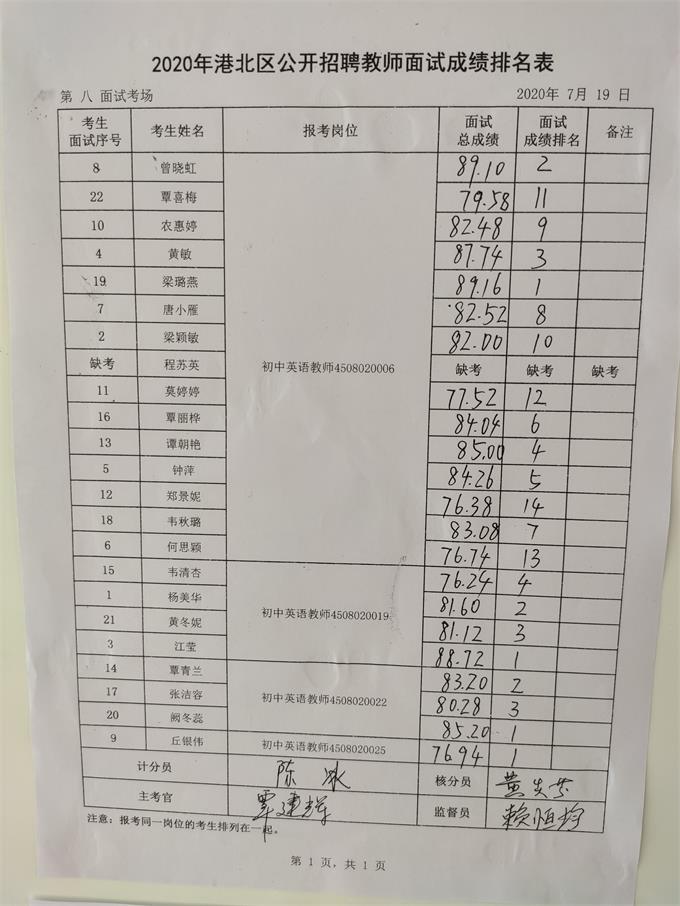 2020年港北区公开招聘教师面试成绩排名表
第 八 面试考场 2020年 7月 19 日
考生面试序号 考生姓名 报考岗位 面试总成绩 面试成绩排名 备注
8 曾晓虹 89.10 2
22 覃喜梅 79.58 11
10 农惠婷 82.48 9
4 黄敏 87.74 3
19 梁璐燕 89.16 1
7 唐小雁 82.52 8
2 梁颖敏 82.00 10
缺考 程苏英 初中英语教师4508020006 缺考 缺考 缺考
11 莫婷婷 77.52 12
16 覃丽桦 84.04 6
13 谭朝艳 85.00 4
5 钟萍 84.26 5
12 郑景妮 76.38 14
18 韦秋璐 83.08 7
6 何思颖 76.74 13
15 韦清杏 76.24 4
1 杨美华 初中英语教师4508020019 81.60 2
21 黄冬妮 81.12 3
3 江莹 88.72 1
14 覃青兰 83.20 2
17 张洁容 初中英语教师4508020022 80.28 3
20 阙冬蕊 85.20 1
9 丘银伟 初中英语教师4508020025 76.94 1
计分员 陈冰 核分员 黄
主考官 覃建辉 监督员 赖恒均
注意：报考同一岗位的考生排列在一起。
第 1 页，共 1 页